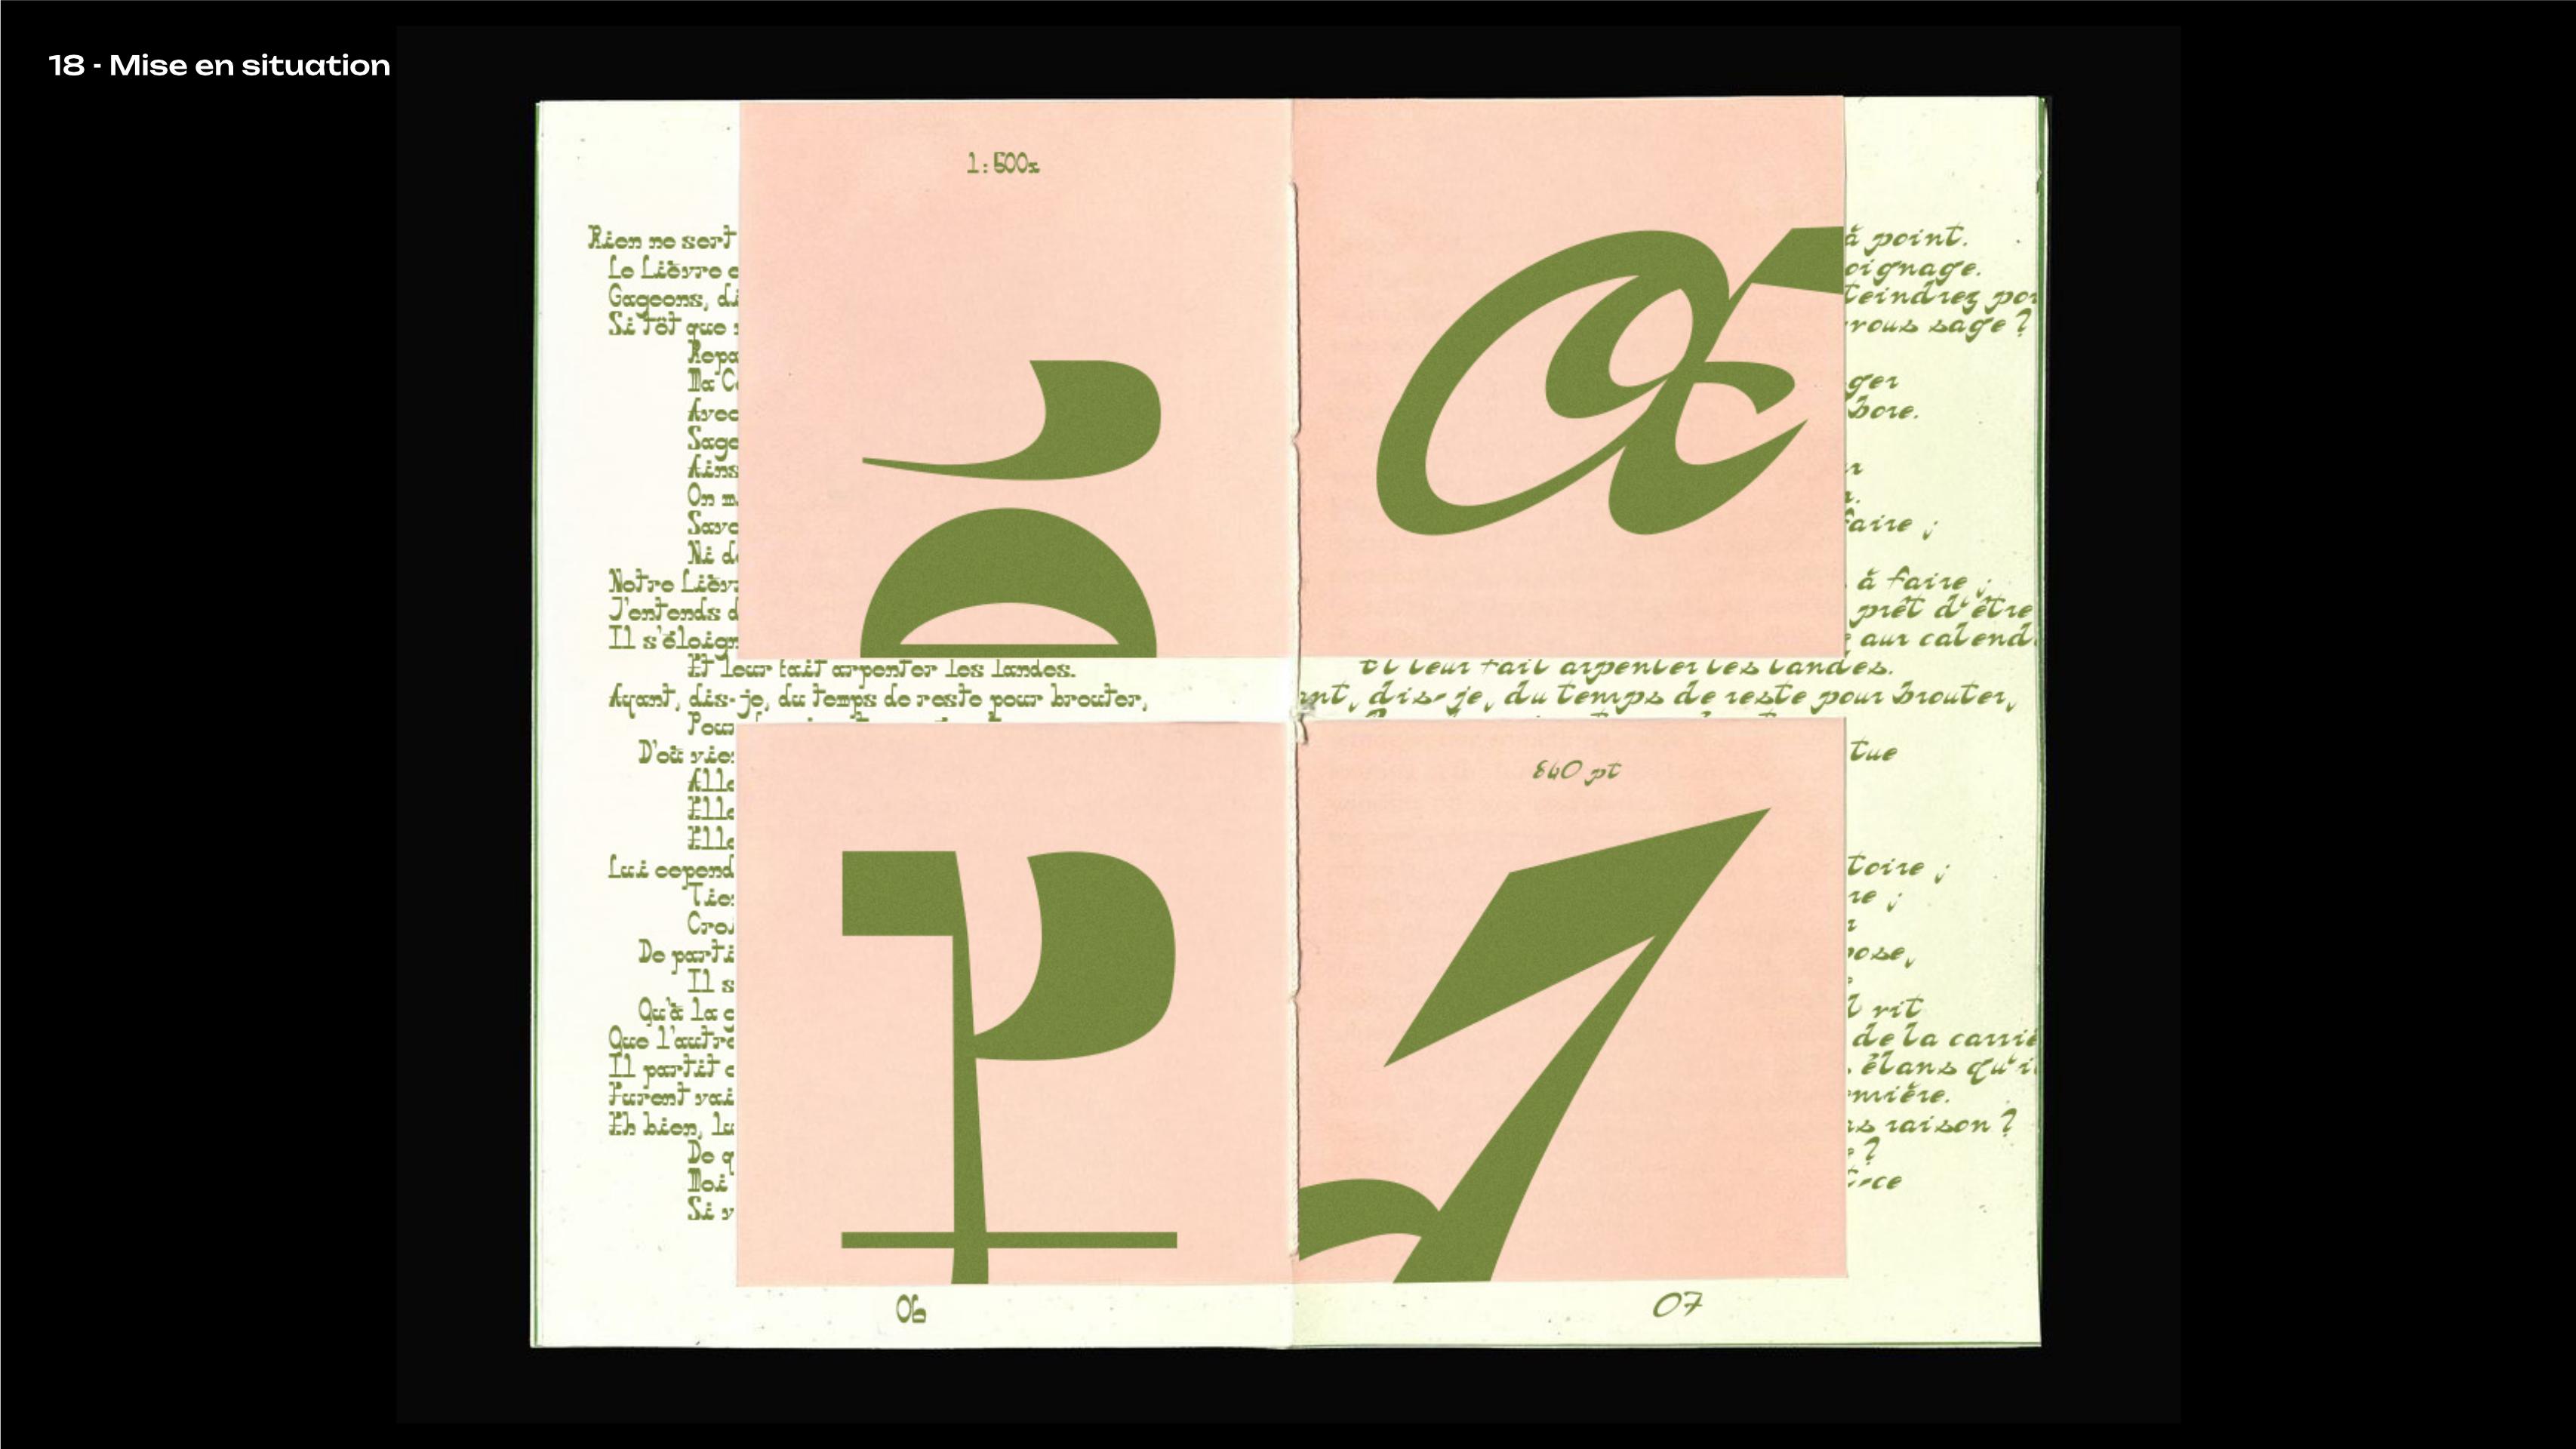 18 - Mise en situation
1:500x
Rien ne sert
Le Lièvre e
Gageons, di
Si tôt que
Repa
Ma C
Avec
Sage
Ains
On m
Save
Ni d
Notre Lièv
J'entends d
Il s'éloign
Et leur fait arpenter les landes.
Ayant, dis-je, du temps de reste pour brouter,
Pour
D'où vie
Alle
Elle
Elle
Lui cepend
Tie
Cro
De parti
Il s
Qu'à la c
Que l'autre
Il partit c
Furent vai
Eh bien, lu
De q
Moi
Si v
06
à point.
oignage.
teindrez pou
vous sage ?
ger
bore.
faire ;
à faire ;
prêt d'être
aux calend
et leur fait arpenter les landes.
ant, dis-je, du temps de reste pour brouter,
860 pt
tue
toire ;
re ;
pose,
rit
de la carriè
élans qu'i
emière.
as raison ?
?
rce
07